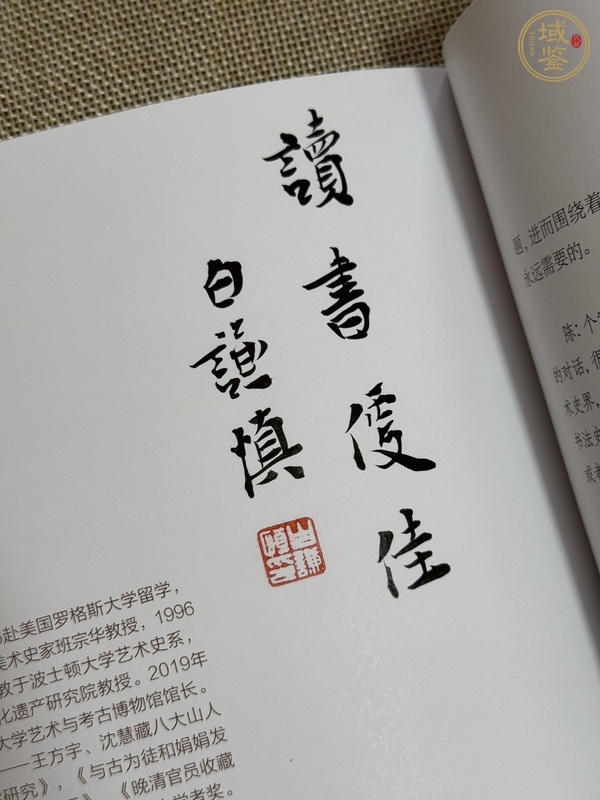 讀書便佳
白謙慎
赴美国罗格斯大学留学，
美术史家班宗华教授，1996
教于波士顿大学艺术史系，
化遗产研究院教授。2019年
大学艺术与考古博物馆馆长。
——王方宇、沈慧藏八大山人
研究》，《与古为徒和娟娟发
《晚清官员收藏
学者奖。
题，进而围绕着
永远需要的。
陈：个
的对话，很
术史界，
书法史
或者
域鉴